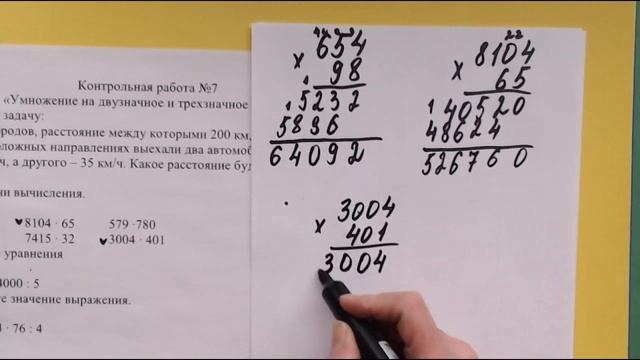 Контрольная работа №7
«Умножение на двузначное и трехзначное
задачу:
ородов, расстояние между которыми 200 км,
оложных направлениях выехали два автомоб
ч, а другого – 35 км/ч. Какое расстояние буд
ни вычисления.
8104 · 65 579 ·780
7415 · 32 3004 · 401
уравнения
4000 : 5
те значение выражения.
· 76 : 4
654
× 98
5232
5896
64092
22
8104
× 65
40520
48624
526760
3004
× 401
3004